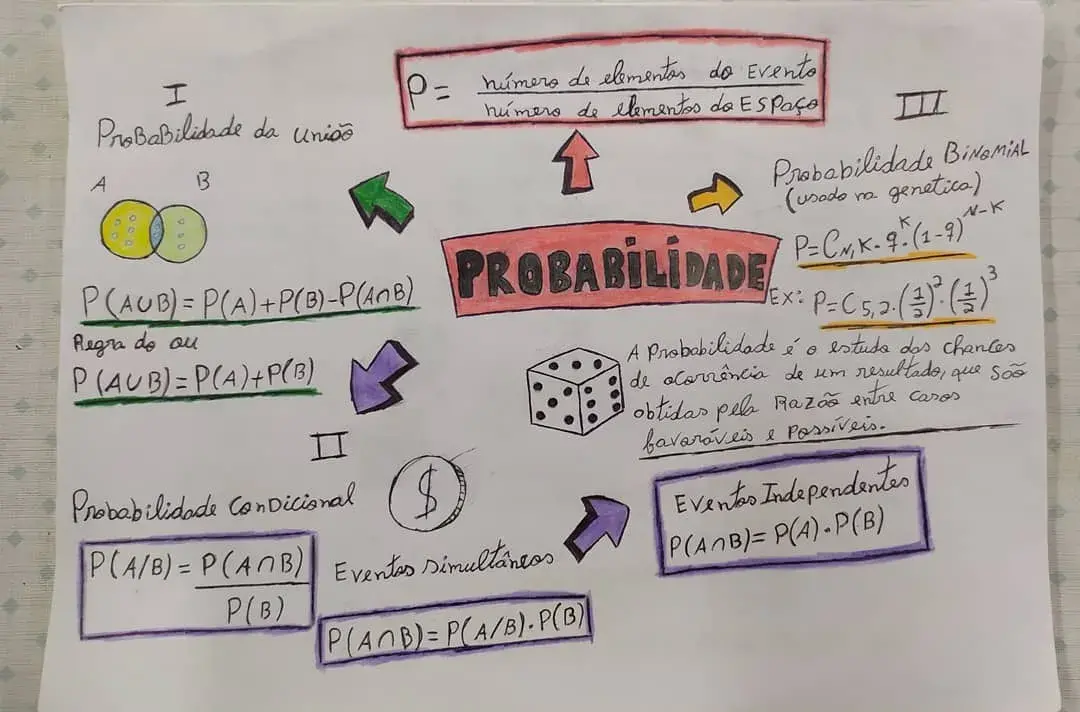 P = número de elementos do Evento
número de elementos do ESPaço
I
ProBaBilidade da união
A B
P(A∪B) = P(A)+P(B)-P(A∩B)
Regra do ou
P(A∪B) = P(A)+P(B)
PROBABILIDADE
III
Probabilidade BiNOMiAL
(usado na genetica)
P=C_N,K · q^K · (1-q)^N-K
Ex: P=C 5,2 · (1/2)^2 · (1/2)^3
A Probabilidade é o estudo das chances
de ocorrência de um resultado, que são
obtidas pela Razão entre casos
favoráveis e Possíveis.
II
Probabilidade ConDicional
P(A/B) = P(A∩B)
P(B)
$
Eventos simultâneos
P(A∩B) = P(A/B) · P(B)
Eventos Independentes
P(A∩B) = P(A) · P(B)